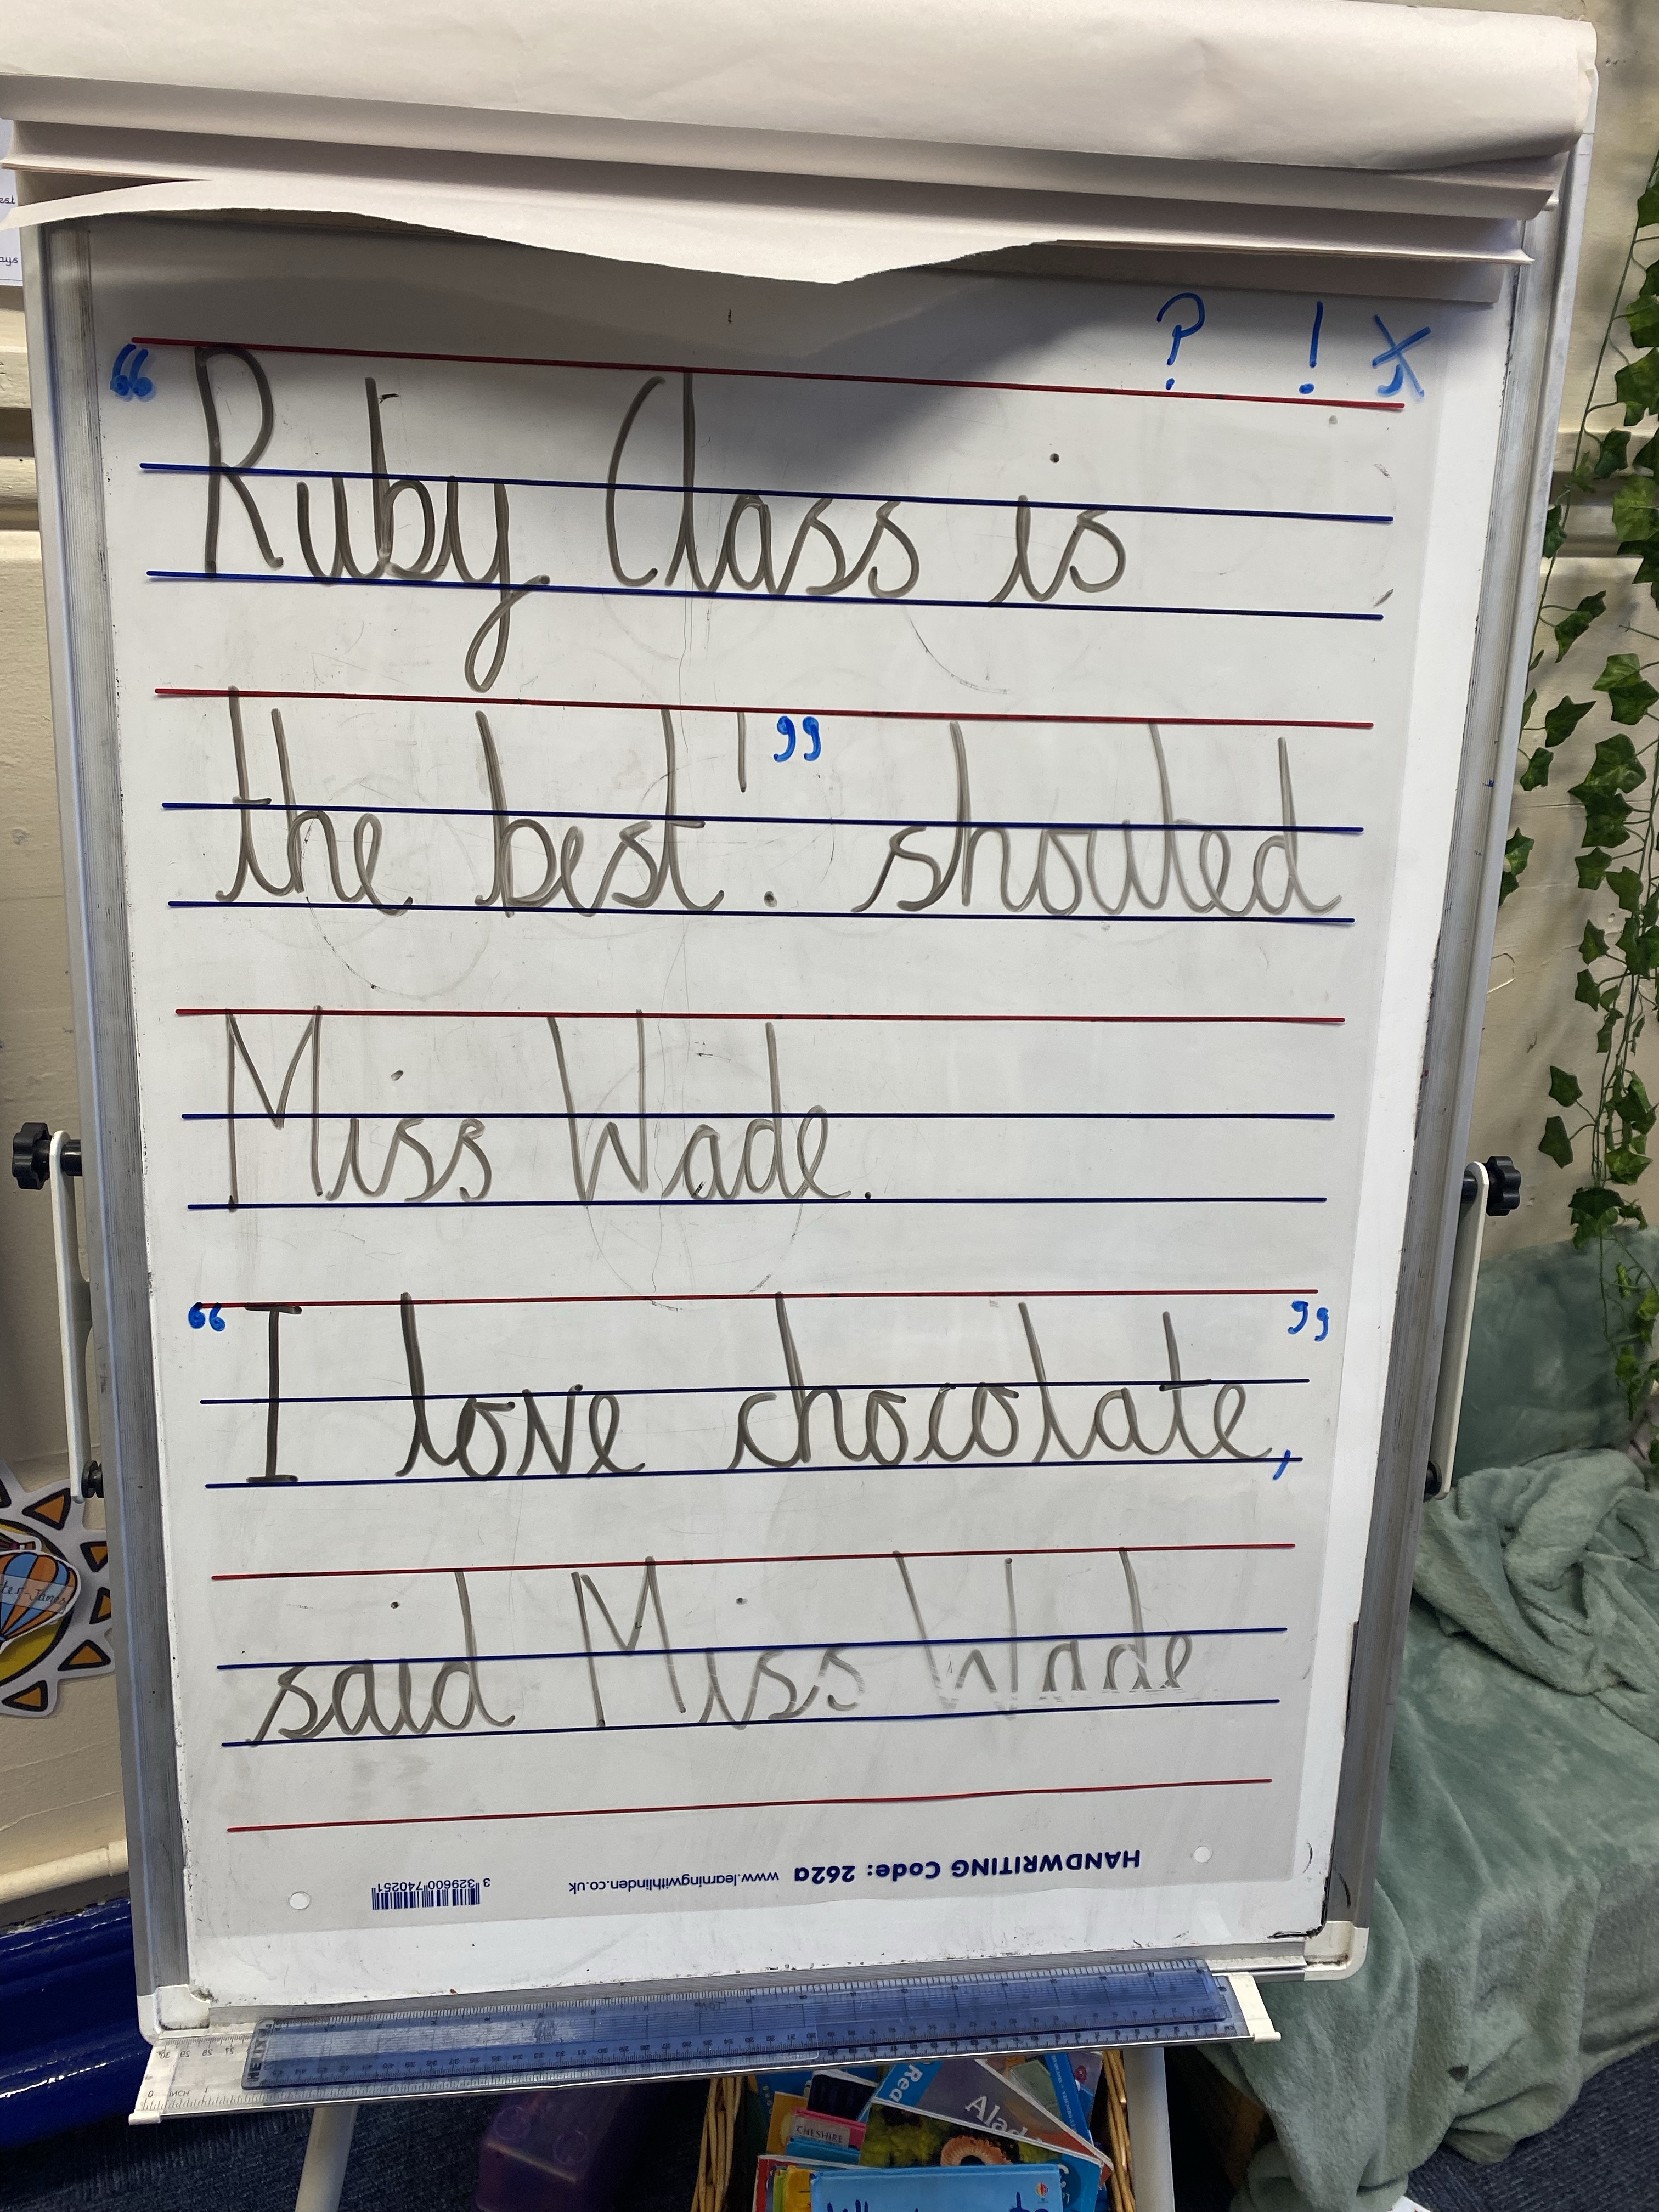 ? ! ,
“Ruby Class is
the best!” shouted
Miss Wade.
“I love chocolate,”
said Miss Wade
HANDWRITING Code: 262a www.learningwithlinden.co.uk
3 329600 740251
HELIX
INCH
CHESHIRE
Rea
Alad